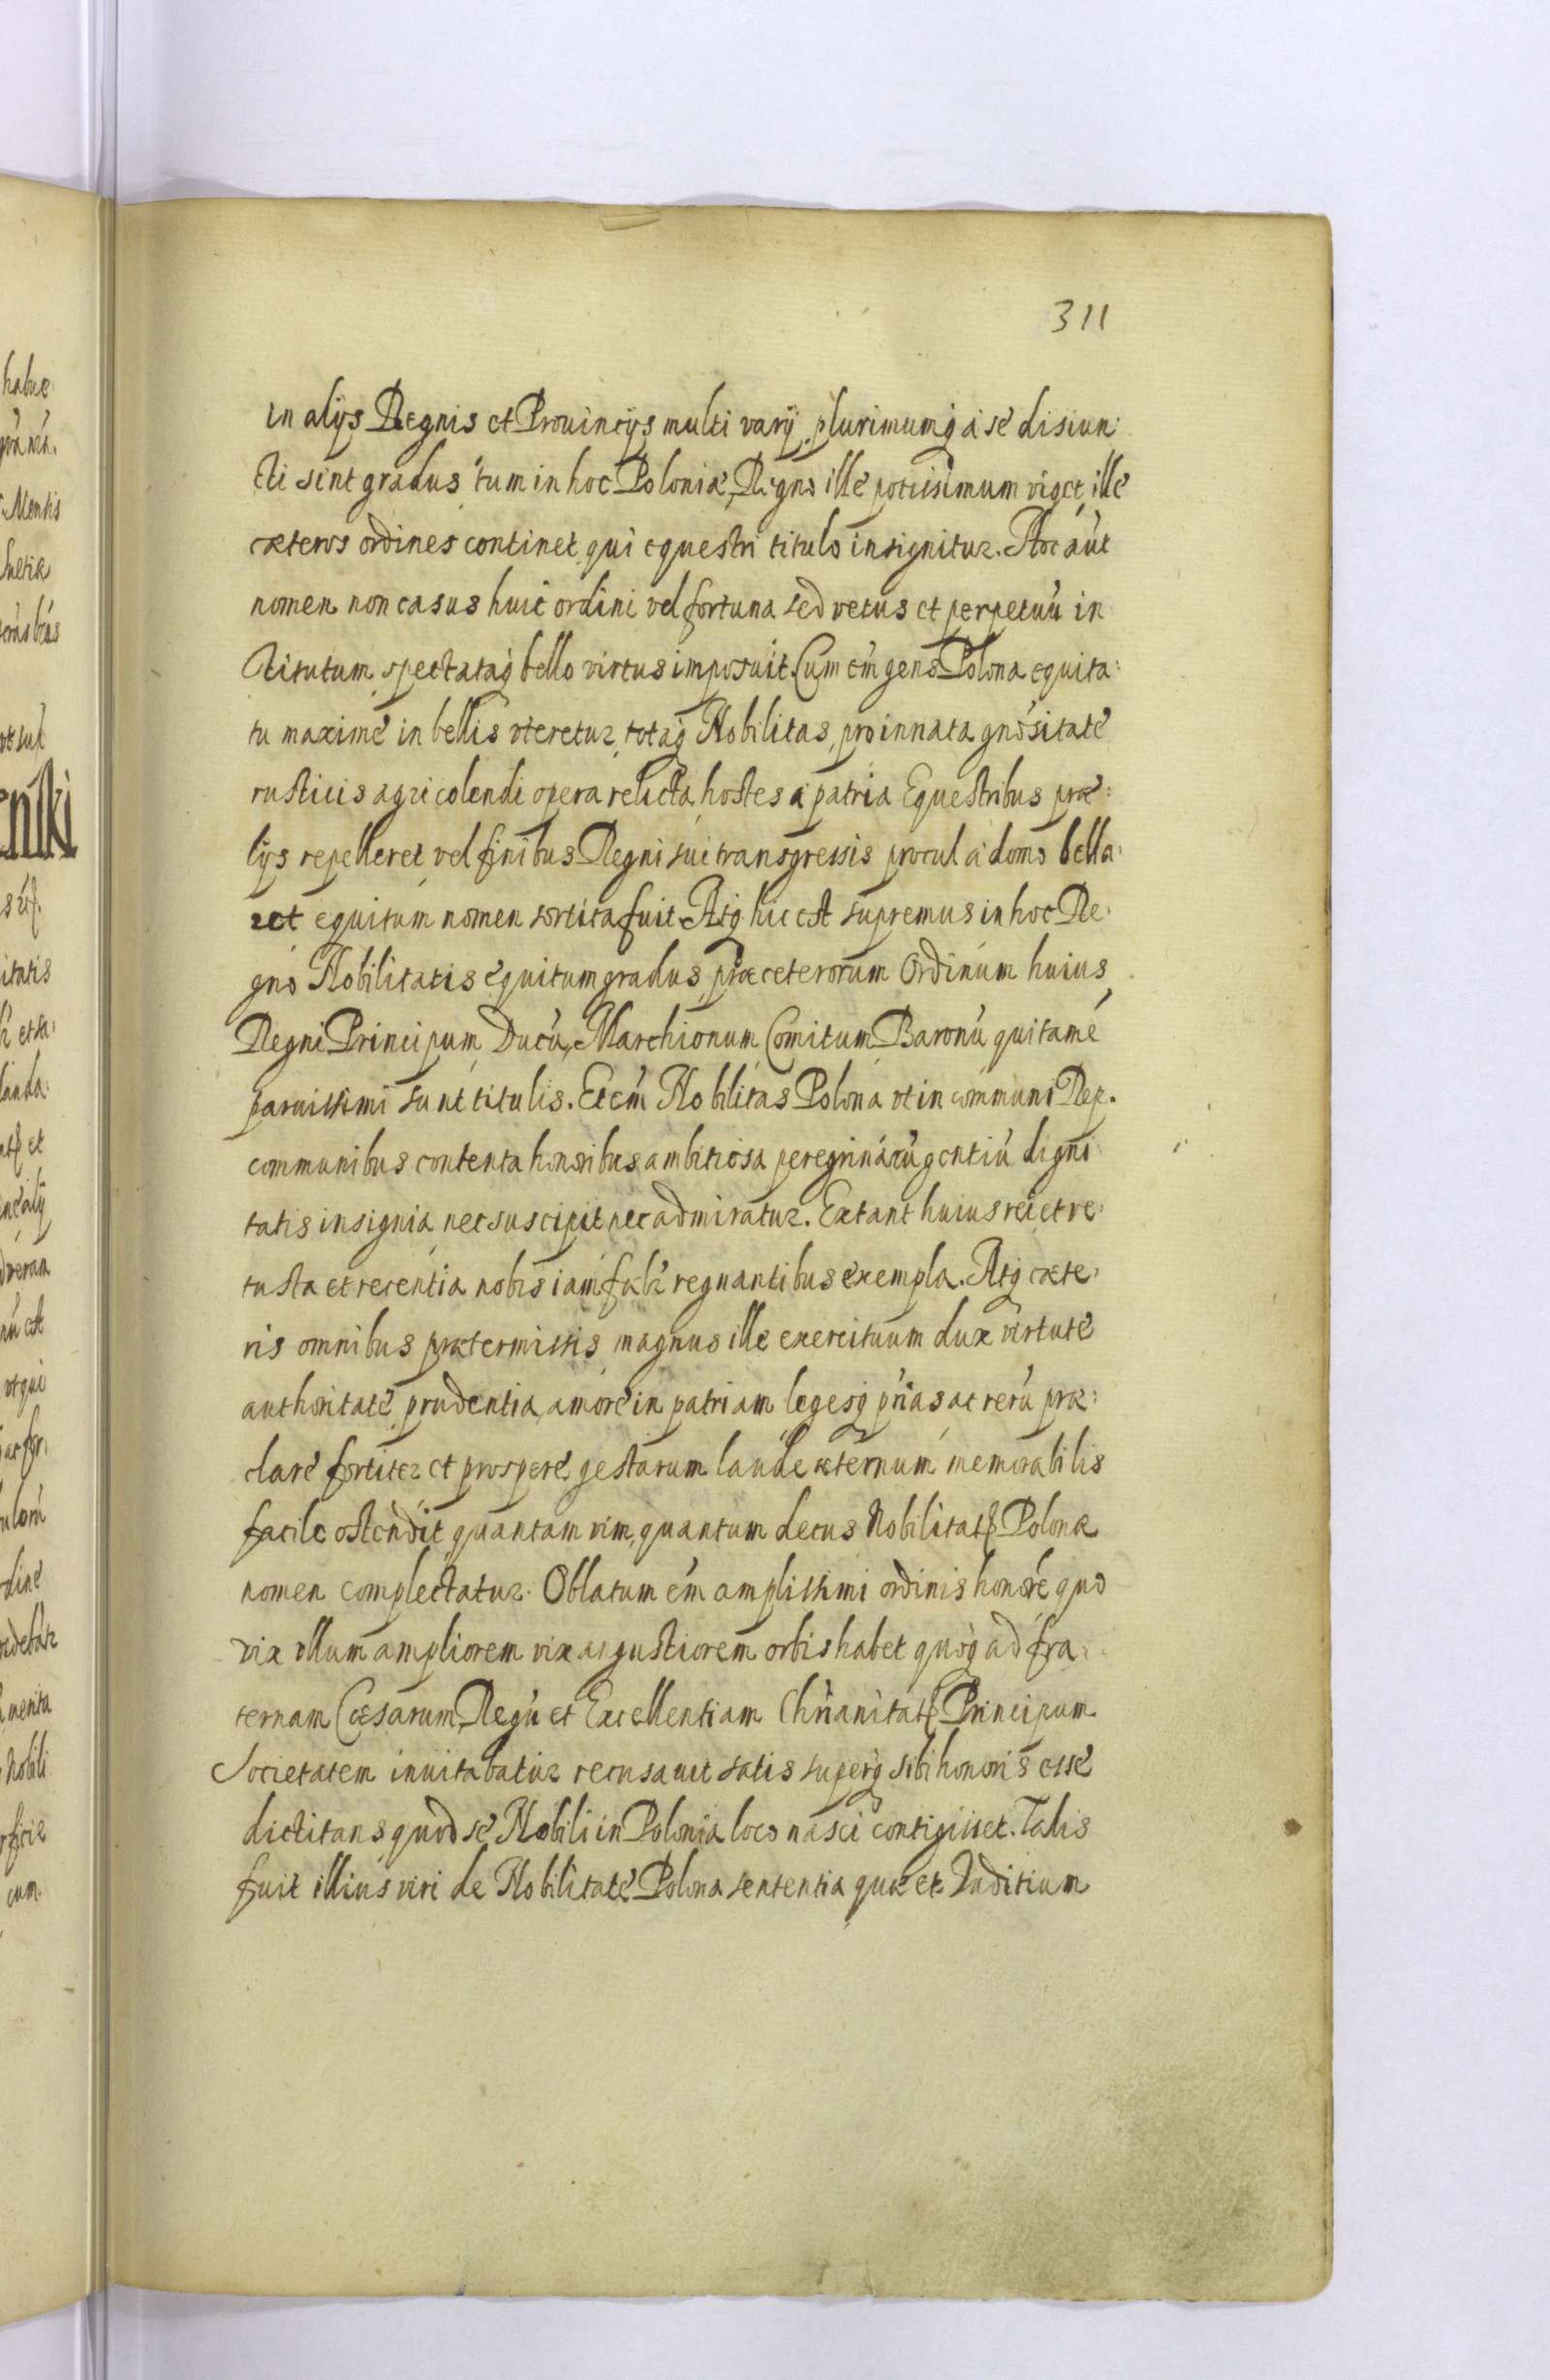 311
in alijs Regnis et Prouincijs multi varij plurimumq́ à se disiun:
cti sint gradus tum in hoc Poloniæ Regno ille potissimum viget, ille
cæteros ordines continet qui equestri titulo insignitur. Hoc aút
nomen non casus huic ordini vel fortuna sed vetus et perpetuú in
stitutum spectataq́ bello virtus imposuit. Cum em̃ gens Polona equita:
tu maximé in bellis vteretur, totaq́ Nobilitas, pro innata gnõsitate
rusticis agri colendi opera relicta, hostes à patria Equestribus præ:
lijs repelleret, vel finibus Regni sui transgressis procul à domo bella:
ret equitum nomen sortita fuit. Atq́ hic est supremus in hoc Re:
gno Nobilitatis equitum gradus, præ ceterorum Ordinum huius
Regni Principum Ducú, Marchionum Comitum Baronú qui tamé
paruissimi sunt titulis. Et em̃ Nobilitas Polona vt in communi Rep.
communibus contenta honoribus ambitiosa peregrinarú gentiú digni
tatis insignia, nec suscipit nec admiratur. Extant huius rei et ve:
tusta et recentia nobis iam regnantibus exempla. Atq́ cæte:
ris omnibus prætermissis magnus ille exercituum dux virtute
authoritate prudentia, amore in patriam legesq́ p̃rias ac rerú præ:
clare fortiter et prospere gestarum laude æternum memorabilis
facile ostendit quantam vim, quantum decus Nobilitatis Polonæ
nomen complectatur. Oblatum em̃ amplissimi ordinis honoré quo
vix vllum ampliorem vix augustiorem orbis habet quoq́ ad fra:
ternam Cæsarum, Regú et Excellentiam Chr̃ianitatis Principum
Societatem inuitabatur recusauit satis superq́ sibi honoris esse
dictitans quod se Nobili in Polonia loco nasci contigisset. Talis
fuit illius viri de Nobilitate Polona sententia quæ et Iuditium